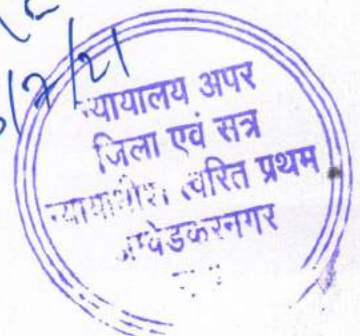 /7/21
न्यायालय अपर
जिला एवं सत्र
न्यायाधीश त्वरित प्रथम
अम्बेडकरनगर